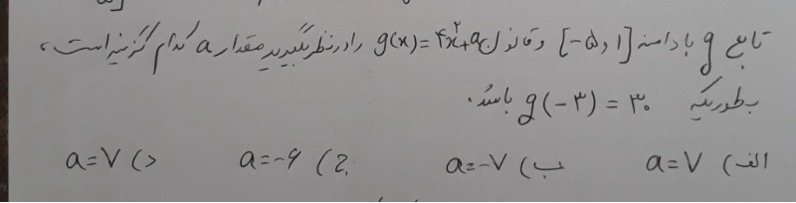 تابع g با دامنه [-۵ و ۱] و قانون g(x)=۴x²+a را در نظر بگیرید مقدار a کدام گزینه است،
بطوریکه g(-۳) = ۳۰ باشد.
الف) a=۷ ب) a=-۷ ج) a=-۶ د) a=۷